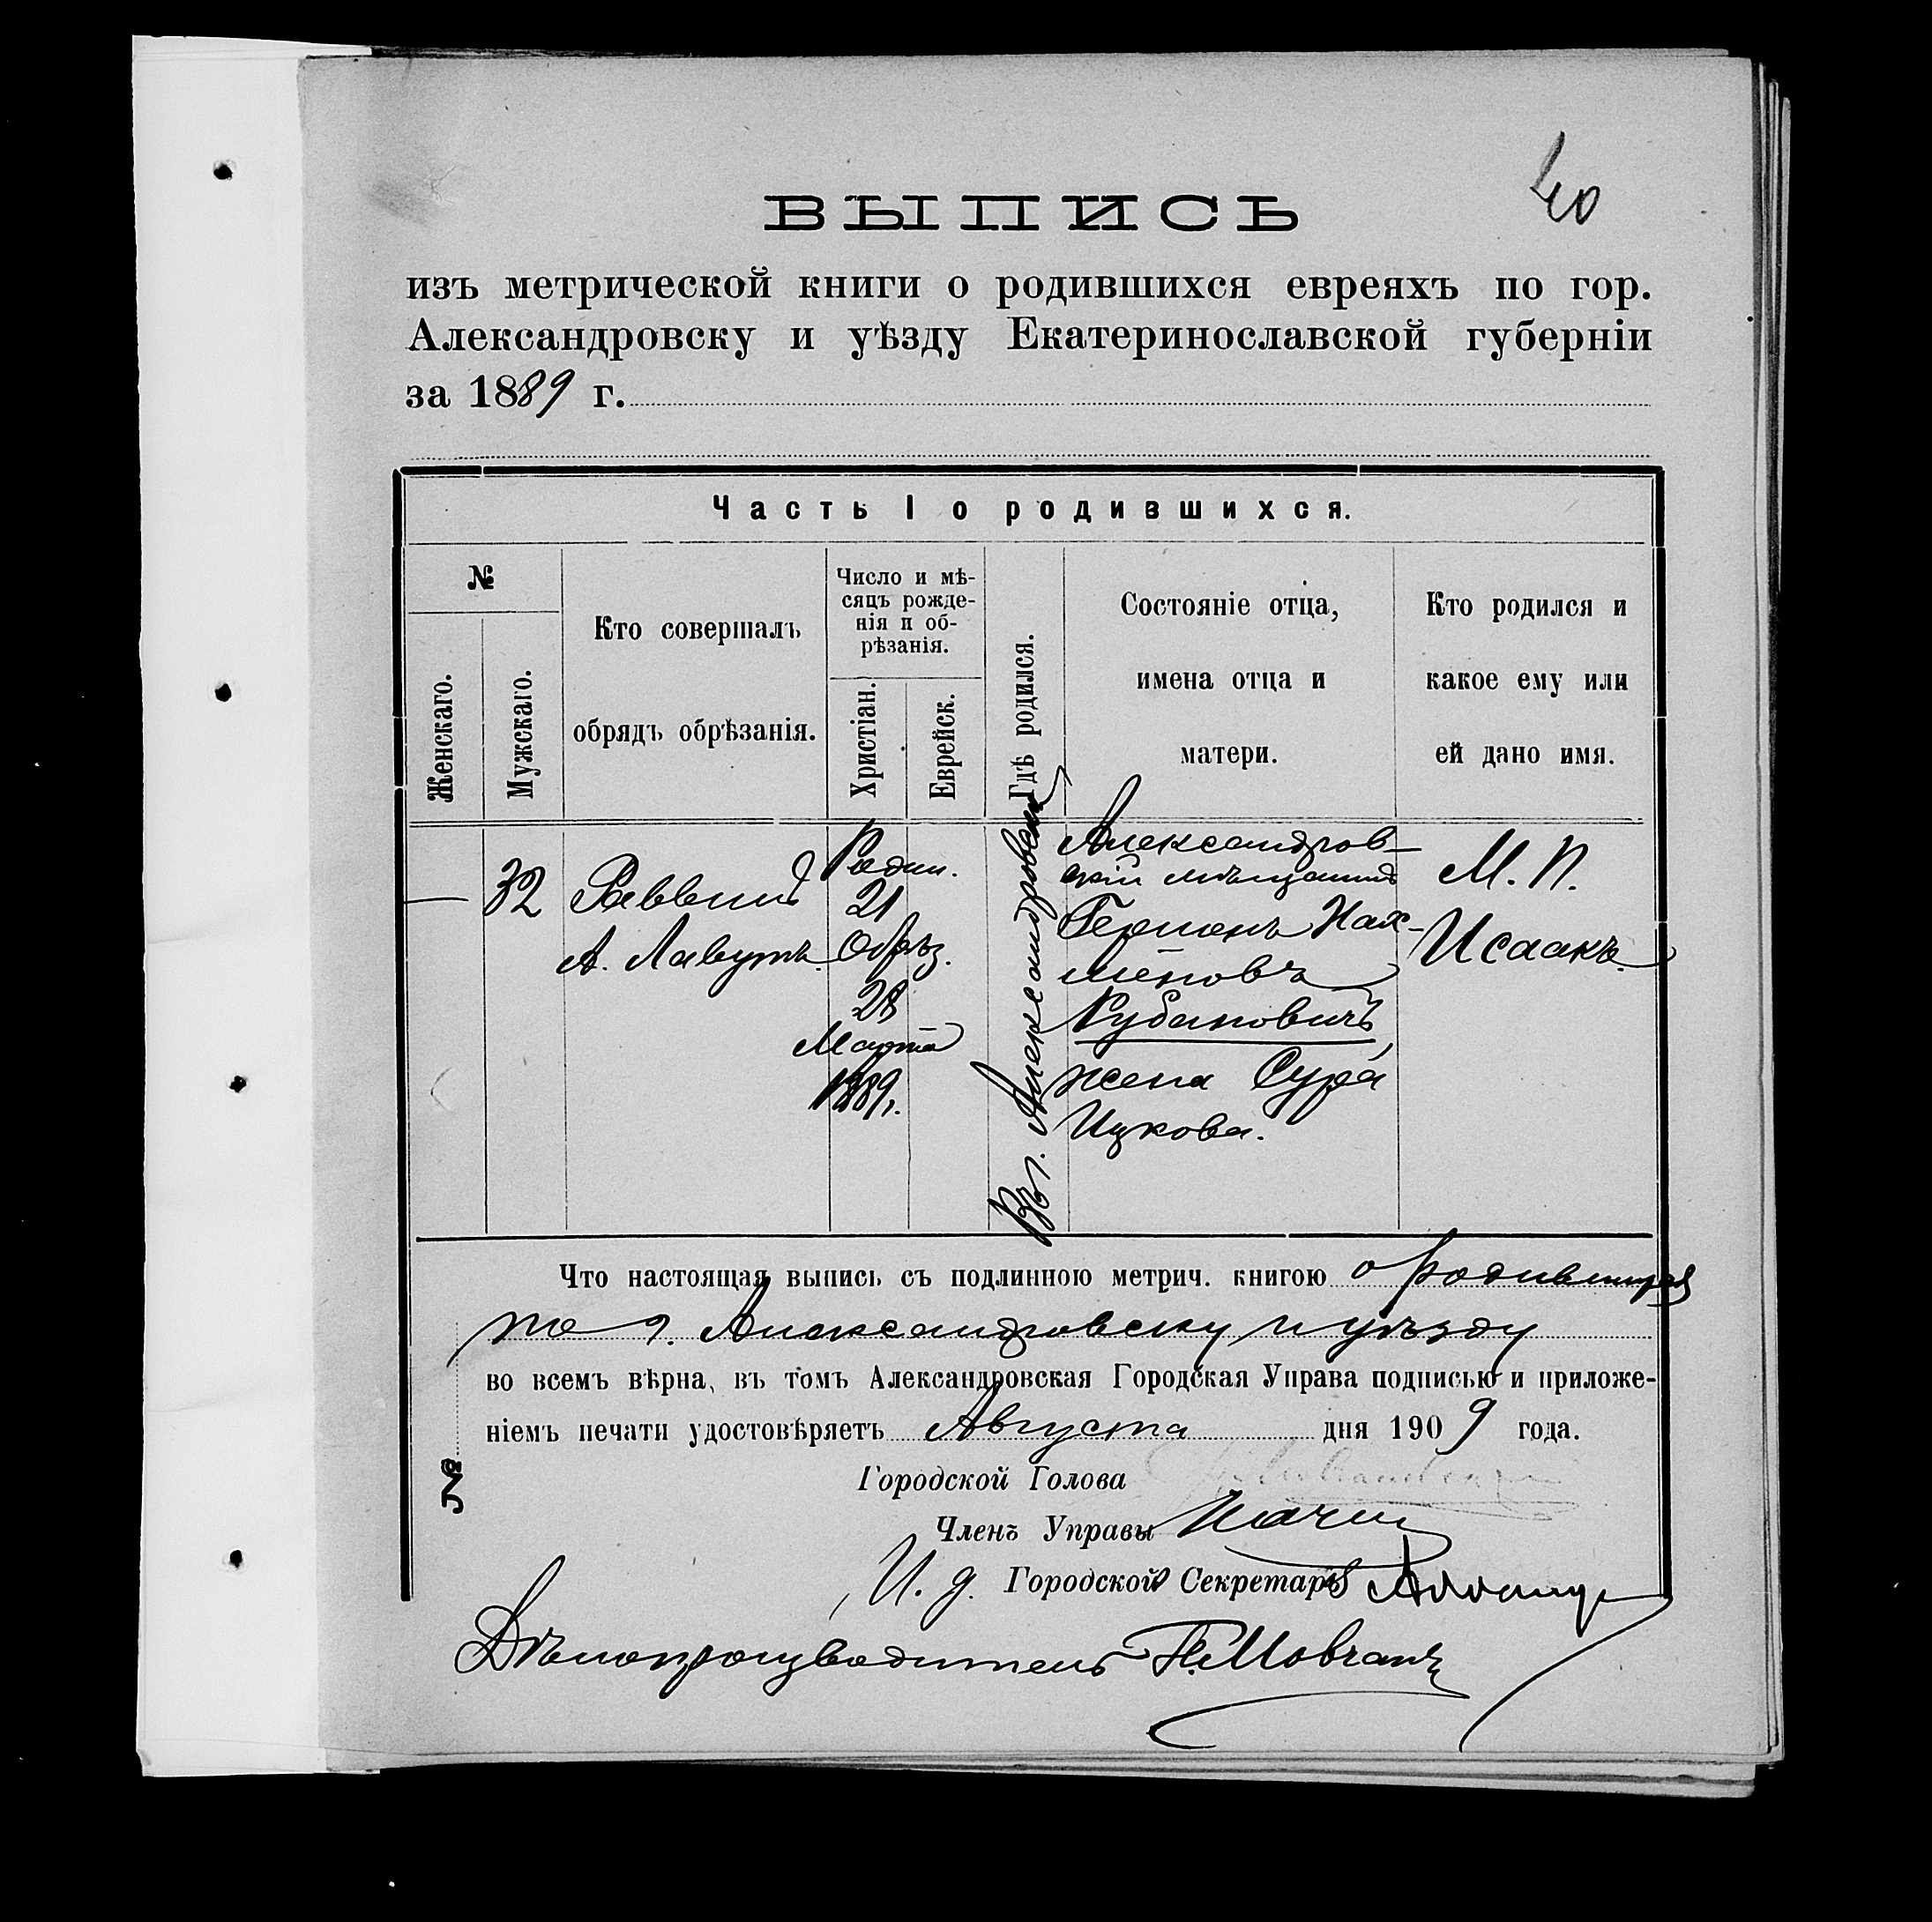 40
ВЫПИСЬ
изъ метрической книги о родившихся евреяхъ по гор.
Александровску и уѣзду Екатеринославской губерніи
за 1889 г.
Часть I о родившихся.
№
Женскаго.
Мужскаго.
Кто совершалъ
обрядъ обрѣзанія.
Число и мѣ-
сяцъ рожде-
нія и об-
рѣзанія.
Христіан.
Еврейск.
Гдѣ родился.
Состояніе отца,
имена отца и
матери.
Кто родился и
какое ему или
ей дано имя.
—
32
Раввинъ
А. Лавутъ.
Родил.
21
Обрѣз.
28
Марта
1889г.
Въ г. Александровскѣ
Александров-
скій мѣщанинъ
Германъ Нах-
меновъ
Рубановичъ
жена Сура
Ицкова.
М. П.
Исаакъ.
Что настоящая выпись съ подлинною метрич. книгою о родившихся
по г. Александровску и уѣзду
во всемъ вѣрна, въ томъ Александровская Городская Управа подписью и приложе-
ніемъ печати удостовѣряетъ Августа дня 1909 года.
№
Городской Голова
Членъ Управы
И. д. Городской Секретарь
Дѣлопроизводитель Н. Мовчанъ